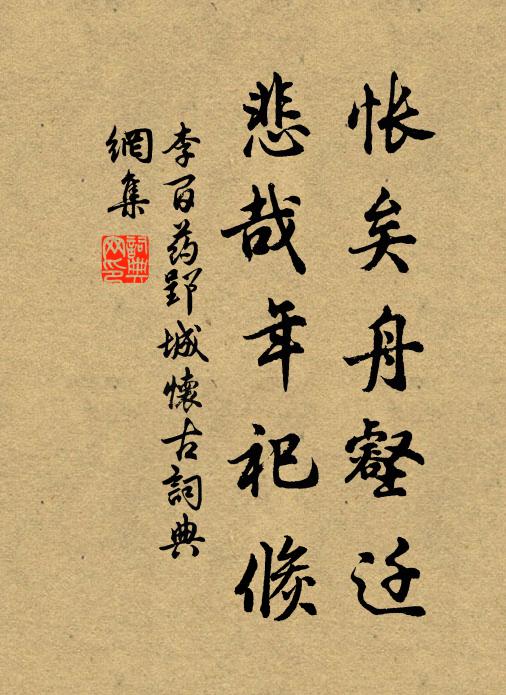 怅矣舟壑迁
悲哉年祀倏
李百药郢城懷古詞典
網集
詞典网印